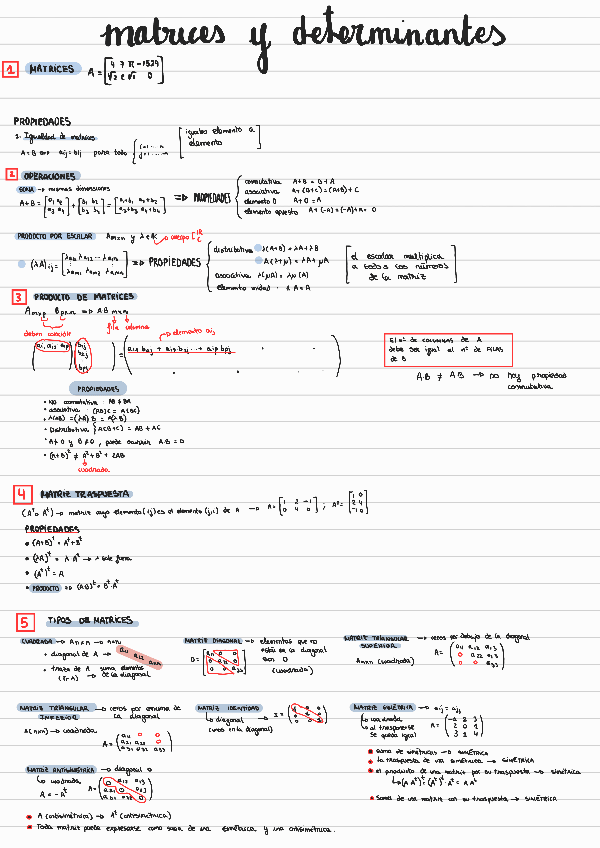 matrices y determinantes
1 MATRICES A = [4 7 π -1529
√2 e √5 0]
PROPIEDADES
1. Igualdad de matrices
A = B ⟺ aij = bij para todo
[iguales elemento a
elemento]
2 OPERACIONES
SUMA → mismas dimensiones
A+B = [a1 a2 a3 a4] + [b1 b2 b3 b4] = [a1+b1 a2+b2 a3+b3 a4+b4] ⇒ PROPIEDADES
conmutativa A+B = B+A
asociativa A+(B+C) = (A+B)+C
elemento 0 A+0 = A
elemento opuesto A+(-A) = (-A)+A = 0
PRODUCTO POR ESCALAR Amxn y λ∈K → cuerpo
(λA)ij = [λa11 λa12 ... λa1n
λam1 λam2 λamn] ⇒ PROPIEDADES
distributiva λ(A+B) = λA+λB
A(λ+μ) = λA+μA
asociativa λ(μA) = λμ(A)
elemento unidad 1·A = A
[el escalar multiplica
a todos los números
de la matriz]
3 PRODUCTO DE MATRICES
Amxp Bpxn ⇒ AB mxn
deben coincidir fila columna
→ elemento aij
(ai1 ai2 aip) (b1j b2j bpj) = (ai1·b1j + ai2·b2j ... + aip·bpj)
El nº de columnas de A
debe ser igual al nº de FILAS
de B
AB ≠ AB → no hay propiedad
conmutativa
PROPIEDADES
• No conmutativa : AB ≠ BA
• asociativa : (AB)C = A(BC)
• λ(AB) = (λA)B = A(λB)
• Distributiva A(B+C) = AB + AC
• A≠0 y B≠0, puede ocurrir AB = 0
• (A+B)² ≠ A²+B²+2AB
cuadrada
4 MATRIZ TRASPUESTA
(Aᵗ o Aᵗ) → matriz cuyo elemento (ij) es el elemento (j,i) de A → A = [1 2 -1
0 4 0] ; Aᵗ = [1 0
2 4
-1 0]
PROPIEDADES
• (A+B)ᵗ = Aᵗ+Bᵗ
• (λA)ᵗ = λAᵗ → λ sale fuera
• (Aᵗ)ᵗ = A
• PRODUCTO ⇒ (AB)ᵗ = Bᵗ·Aᵗ
5 TIPOS DE MATRICES
CUADRADA → Anxn → nxn
• diagonal de A → a11 a22 ann
• traza de A (Tr A) → suma elementos
de la diagonal
MATRIZ DIAGONAL → elementos que no
están en la diagonal
son 0
D = [a11 0 0
0 a22 0
0 0 a33]
(cuadrada)
MATRIZ TRIANGULAR → ceros por debajo de la diagonal
SUPERIOR
Anxn (cuadrada) A = (a11 a12 a13
0 a22 a23
0 0 a33)
MATRIZ TRIANGULAR → ceros por encima de
INFERIOR la diagonal
A(nxn) → cuadrada
A = (a11 0 0
a21 a22 0
a31 a32 a33)
MATRIZ IDENTIDAD
↳ diagonal → I = (1 0 0
0 1 0
0 0 1)
(unos en la diagonal)
MATRIZ SIMÉTRICA → aij = aji
↳ cuadrada
↳ al trasponerse
se queda igual
A = (-1 2 3
2 0 1
3 1 4)
• suma de simétricas → SIMÉTRICA
• la traspuesta de una simétrica → SIMÉTRICA
• el producto de una matriz por su traspuesta → simétrica
↳ (A Aᵗ)ᵗ = (Aᵗ)ᵗ·Aᵗ = A Aᵗ
• Suma de una matriz con su traspuesta → SIMÉTRICA
MATRIZ ANTISIMÉTRICA → diagonal 0
↳ cuadrada
A = -Aᵗ
• A (antisimétrica) → Aᵗ (antisimétrica)
• Toda matriz puede expresarse como suma de una simétrica y una antisimétrica.